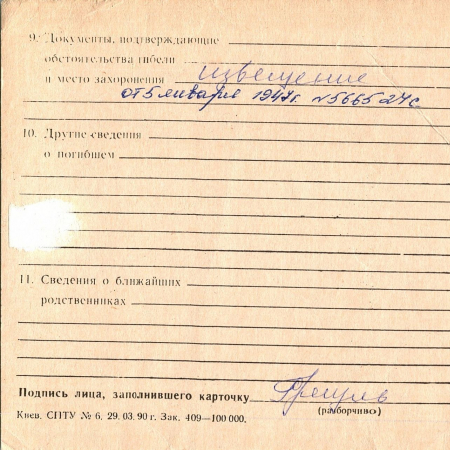 9. Документы, подтверждающие
обстоятельства гибели
и место захоронения извещение
от 5 января 1947г. № 5665 27с
10. Другие сведения
о погибшем
11. Сведения о ближайших
родственниках
Подпись лица, заполнившего карточку
(разборчиво)
Киев. СПТУ № 6. 29. 03. 90 г. Зак. 409—100 000.